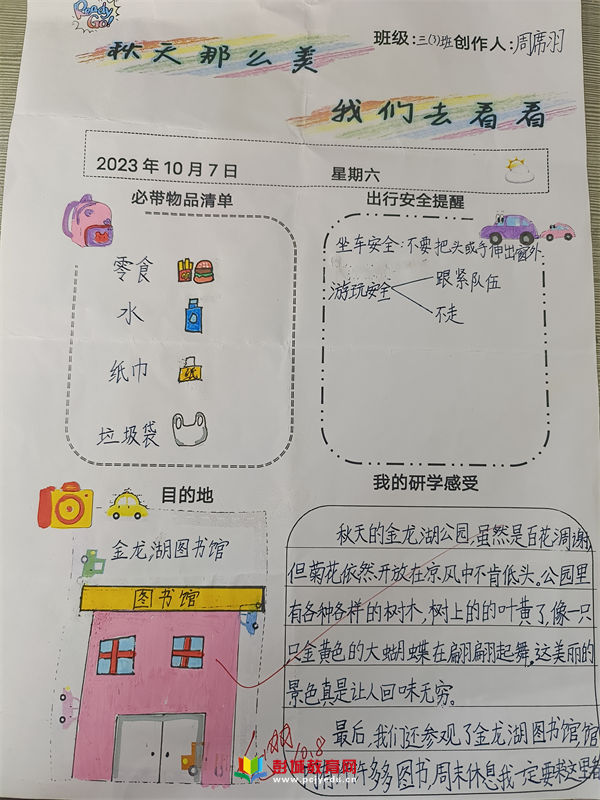 Ready Go!
秋天那么美
班级:三(3)班创作人:周席羽
我们去看看
2023年10月7日
星期六
必带物品清单
零食
水
纸巾
纸
垃圾袋
出行安全提醒
坐车安全:不要把头或手伸出窗外.
游玩安全
跟紧队伍
不走
目的地
金龙湖图书馆
图书馆
我的研学感受
秋天的金龙湖公园,虽然是百花凋谢,
但菊花依然开放在凉风中不肯低头。公园里
有各种各样的树木,树上的的叶黄了,像一只
只金黄色的大蝴蝶在翩翩起舞。这美丽的
景色真是让人回味无穷。
最后,我们还参观了金龙湖图书馆馆
许多多图书,周末休息我一定要来这里看
10.8
彭城教育网
www.pcjyedu.cn